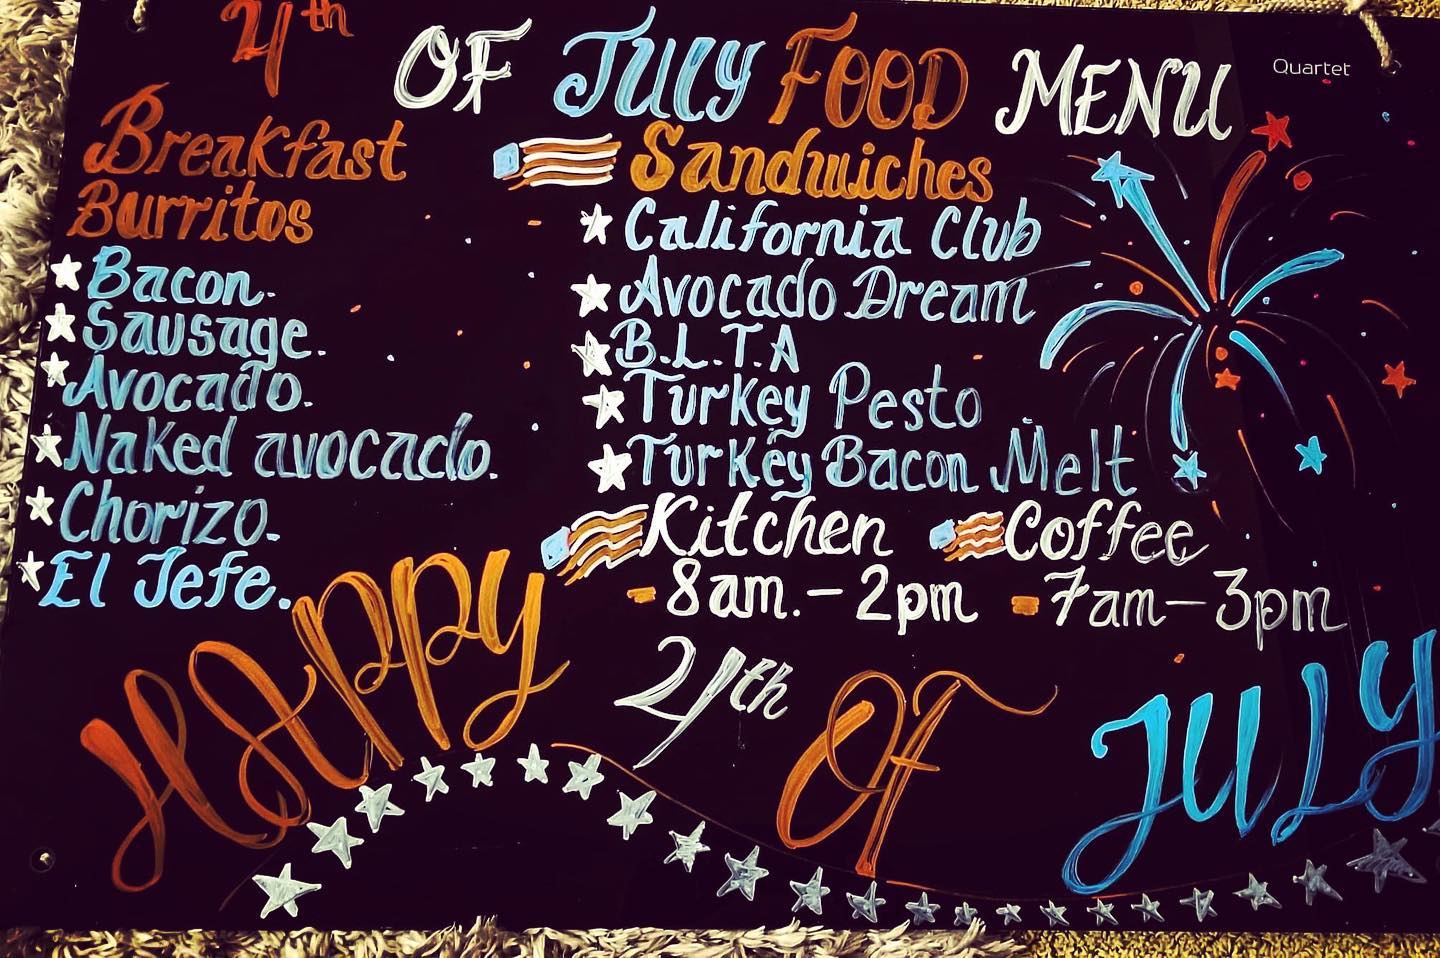 4th OF JULY FOOD MENU
Quartet
Breakfast
Burritos
Bacon.
Sausage.
Avocado.
Naked avocado.
Chorizo.
El Jefe.
Sandwiches
California Club
Avocado Dream
B.L.T.A
Turkey Pesto
Turkey Bacon Melt
Kitchen
8am.- 2pm
Coffee
7am-3pm
HAppy 4th OF JULY